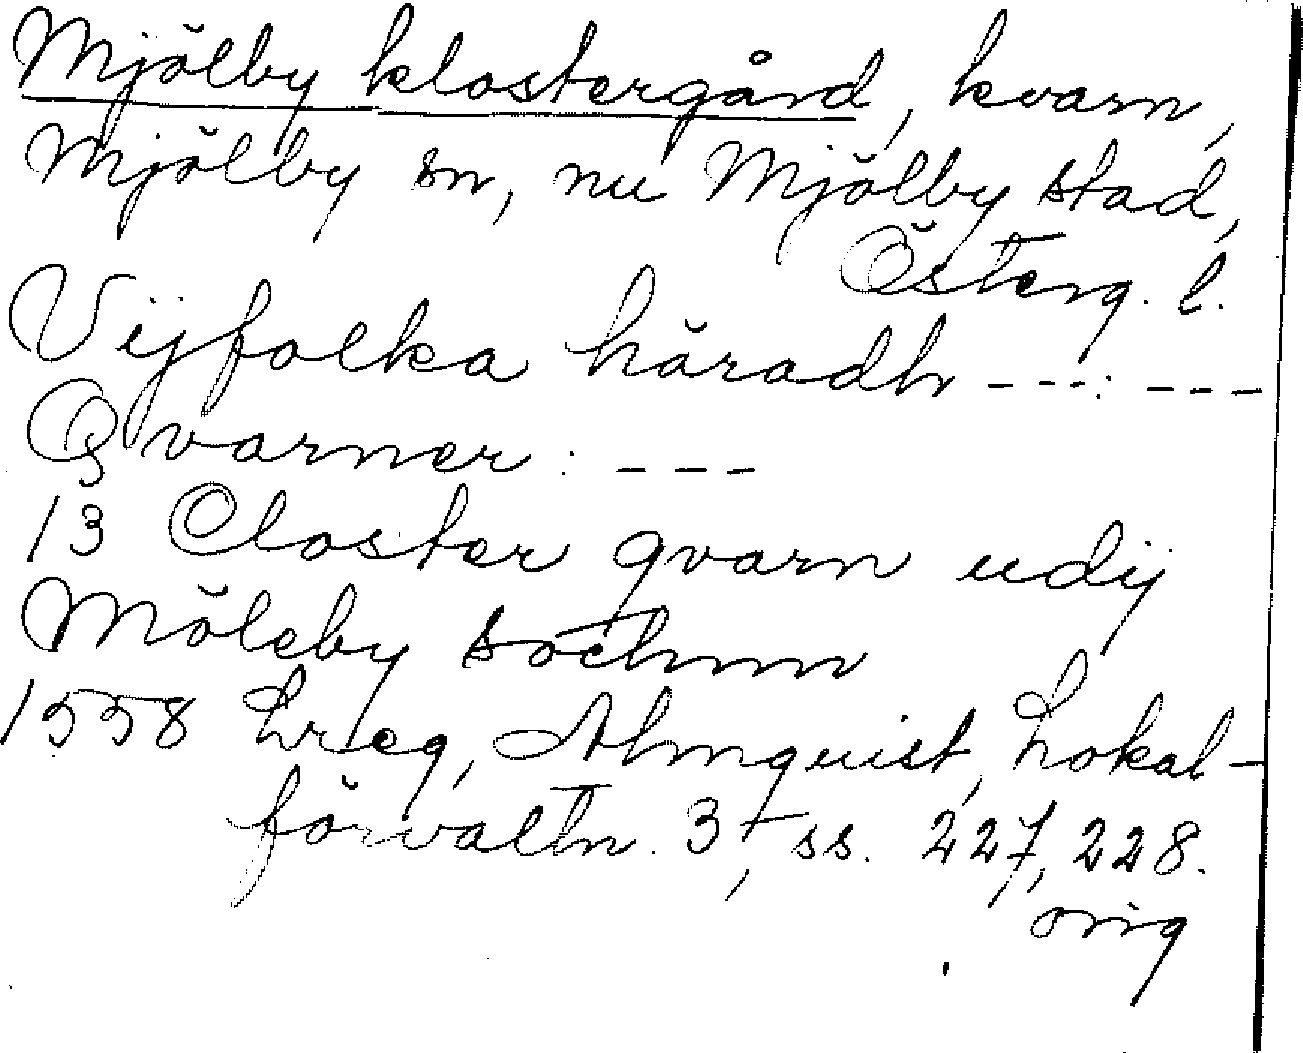 Mjölby klostergård, kvarn,
Mjölby sn, nu Mjölby stad,
Österg. l.
Vijfolka häradh ---:---
Qvarner: ---
13 Closter qvarn udij
Möleby sochnn
1558 Lreg, Almquist, Lokal-
förvaltn. 3, ss. 227, 228.
orig